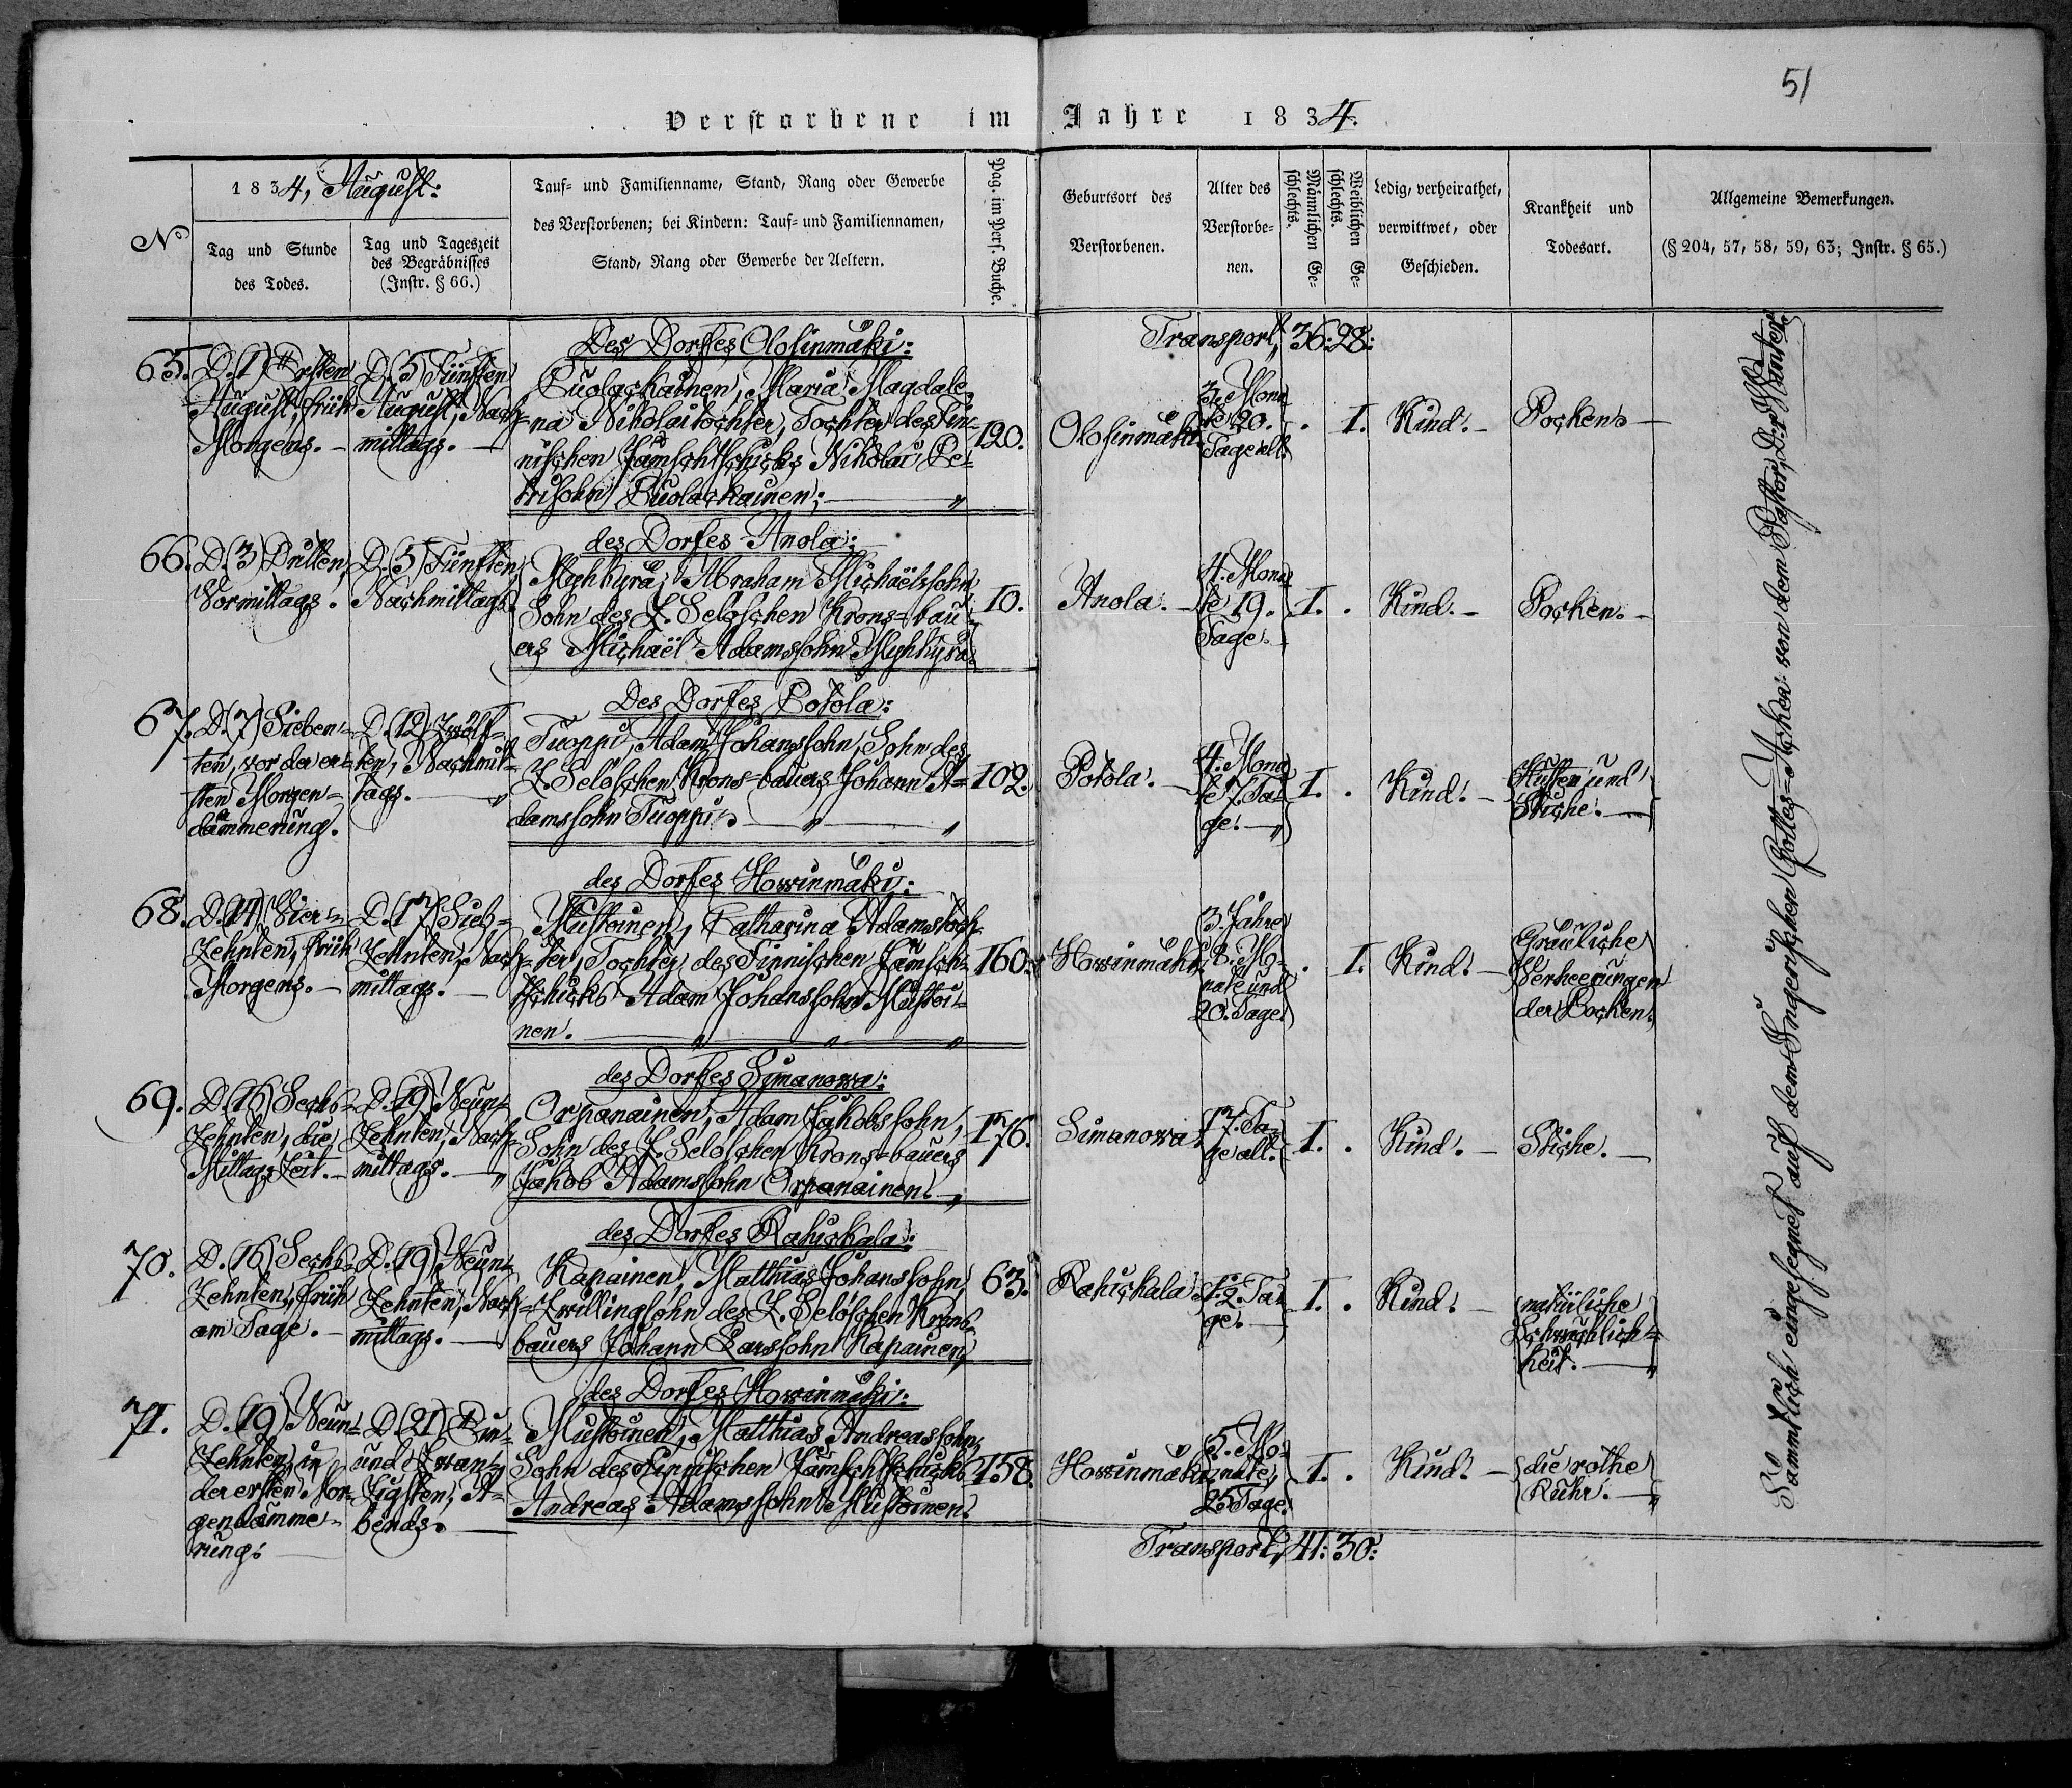 51
Verstorbene im Jahre 1834.
No
1834, August:
Tag und Stunde
des Todes.
Tag und Tageszeit
des Begräbnisses
(Instr. § 66.)
Tauf- und Familienname, Stand, Rang oder Gewerbe
des Verstorbenen; bei Kindern: Tauf- und Familiennamen,
Stand, Rang oder Gewerbe der Aeltern.
Pag. im Pers. Buche.
Geburtsort des
Verstorbenen.
Alter des
Verstorbe-
nen.
Männlichen Ge-
schlechts.
Weiblichen Ge-
schlechts.
Ledig, verheirathet,
verwittwet, oder
Geschieden.
Krankheit und
Todesart.
Allgemeine Bemerkungen.
(§ 204, 57, 58, 59, 63; Instr. § 65.)
Transport, 36: 28:
65.
D. (1) Ersten
August, früh
Morgens. -
D. (5) Fünften
August, Nach-
mittags. -
Des Dorfes Olosinmäki:
Puolackainen, Maria Magdale-
na Nikolaitochter, Tochter des Fin-
nischen Jämschtschicks Nikolai Pe-
trisohn Puolackainen;
120.
Olosinmäki
3. Mona
te 20.
Tage alt.
. I.
Kind. -
Pocken -
66.
D. (3) Dritten,
Vormittags.
D. (5) Fünften,
Nachmittags.
des Dorfes Anola:
Myhkyrä, Abraham Michaëlssohn
Sohn des Z. Seloschen Krons-bau-
ers Michaël Adamssohn Myhkyrä
10.
Anola. -
4. Mona
te 19.
Tage.
I. .
Kind. -
Pocken. -
67.
D. (7) Sieben-
ten, vor der er-
sten Morgen-
dämmerung.
D. (12) Zwölf-
ten, Nachmit-
tags.
Des Dorfes Potola:
Tuoppi, Adam Johanssohn, Sohn des
Z. Seloschen Krons-bauers Johann A-
damssohn Tuoppi
102.
Potola. -
4. Mona
te 7. Ta-
ge.
I. .
Kind. -
Husten und
Stiche. -
68.
D. (14) Vier-
zehnten, früh
Morgens. -
D. (17) Sieb-
zehnten, Nach-
mittags. -
des Dorfes Howinmäki:
Mustoinen, Catharina Adamstoch-
ter, Tochter des Finnischen Jämsch-
tschicks Adam Johanssohn Mustoi-
nen.
160.
Howinmäki
3 Jahre
8. Mo-
nate und
20. Tage.
. I.
Kind. -
Gräuliche
Verheerungen
der Pocken.
69.
D. (16) Sechs-
zehnten, die
Mittags Zeit. -
D. (19) Neun-
zehnten, Nach-
mittags. -
des Dorfes Simanowa:
Orpanainen, Adam Jakobssohn,
Sohn des Z. Seloschen Krons-bauers
Jakob Adamssohn Orpanainen. -
176.
Simanowa
17. Ta-
ge alt.
I. .
Kind. -
Stiche. -
70.
D. (16) Sechs-
zehnten, früh
am Tage. -
D. (19) Neun-
zehnten, Nach-
mittags. -
des Dorfes Rahickala:
Kapainen, Matthias Johanssohn,
Zwillingsohn des Z. Seloschen Krons-
bauers Johann Larssohn Kapainen,
63.
Rahickala
12. Ta-
ge.
I. .
Kind. -
natürliche
Schwächlich-
keit. -
71.
D. (19) Neun-
zehnten, in
der ersten Mor-
gendämme-
rung.
D. (21) Ein-
und zwan-
zigsten, A-
bends. -
des Dorfes Howinmäki:
Mustoinen, Matthias Andreassohn,
Sohn des Finnischen Jämschtschicks
Andreas Adamssohn Mustoinen.
158.
Howinmäki
5. Mo-
nate,
25 Tage.
I. .
Kind. -
die rothe
Ruhr. -
Transport, 41: 30:
Sämmtlich eingesegnet auf dem Ingerischen Gottes-Acker von dem Pastor